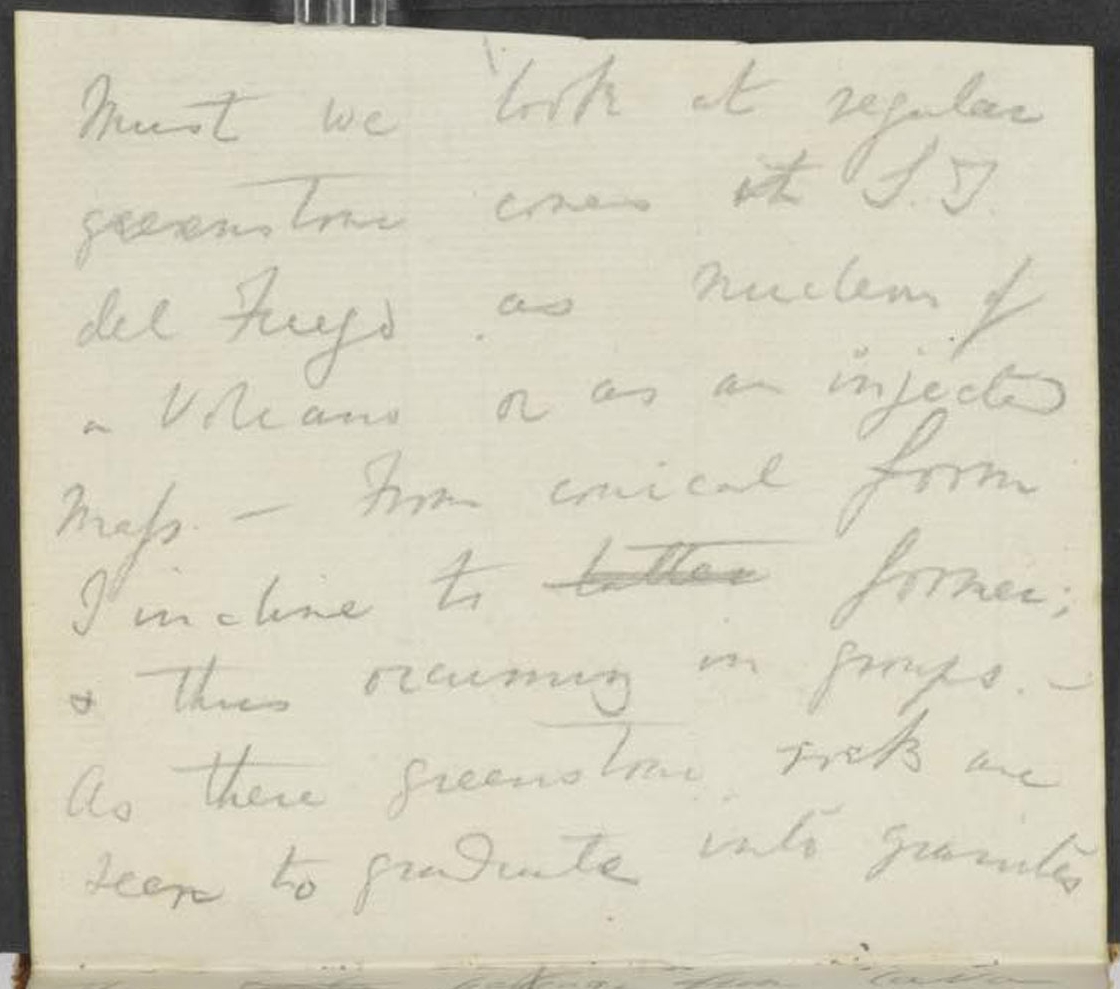 Must we look at regular
greenstone cones at S.T.
del Fuego as nucleus of
a Volcano or as an injected
mass. — From conical form
I incline to latter former;
& thus occurring in groups. —
As these greenstone rocks are
seen to graduate into granites